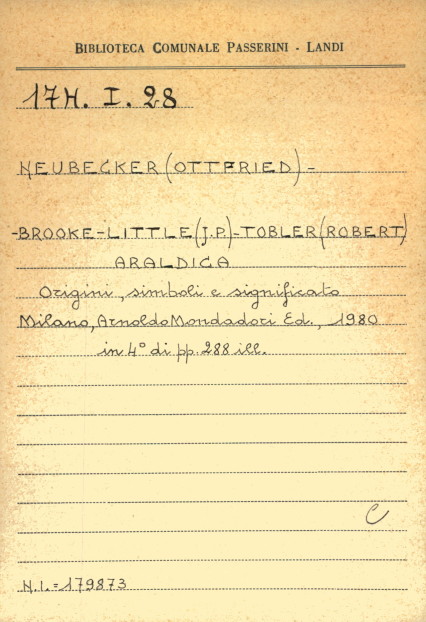 BIBLIOTECA COMUNALE PASSERINI - LANDI
17H. I. 28
NEUBECKER (OTTFRIED) =
-BROOKE-LITTLE (J.P.)-TOBLER (ROBERT)
ARALDICA
Origini, simboli e significato
Milano, Arnoldo Mondadori Ed., 1980
in 4° di pp. 288 ill.
C
N.I. = 179873